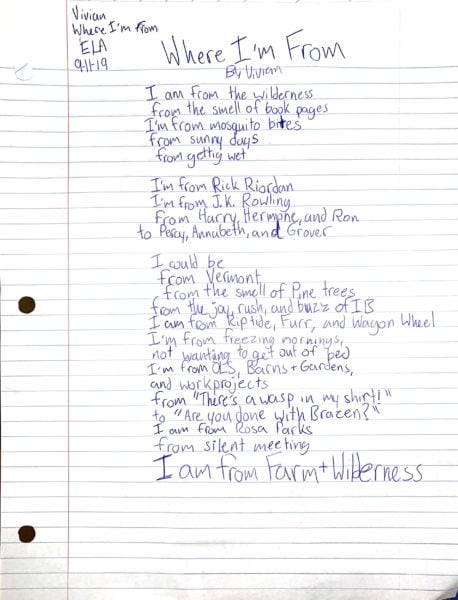 Vivian
Where I'm From
ELA
9-11-19
Where I'm From
By Vivian
I am from the wilderness
from the smell of book pages
I'm from mosquito bites
from sunny days
from gettig wet
I'm from Rick Riordan
I'm from J.K. Rowling
From Harry, Hermone, and Ron
to Percy, Annabeth, and Grover
I could be
from Vermont
from the smell of Pine trees
from the joy, rush, and buzz of IB
I am from Riptide, Furr, and Wagon Wheel
I'm from freezing mornings,
not wanting to get out of bed
I'm from OLS, Barns + Gardens,
and workprojects
from "There's a wasp in my shirt!"
to "Are you done with Brazen?"
I am from Rosa Parks
from silent meeting
I am from Farm + Wilderness